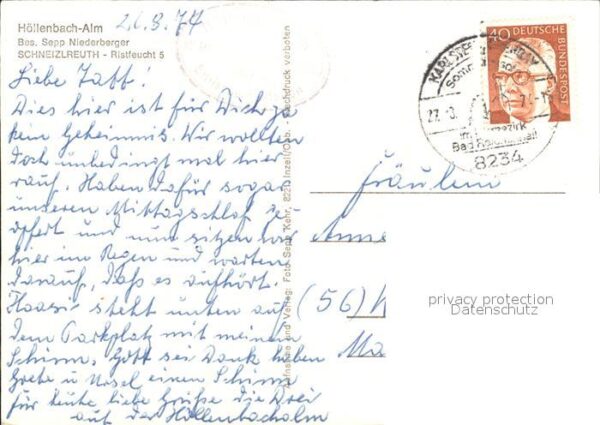 Höllenbach-Alm
Bes. Sepp Niederberger
SCHNEIZLREUTH - Ristfeucht 5
26.8.74
Liebe Taff!
Dies hier ist für Dich ja
kein Geheimnis. Wir wollten
doch unbedingt mal hier
rauf. Haben dafür sogar
unseren Mittagsschlaf ge-
opfert und nun sitzen wir
hier im Regen und warten
darauf, daß es aufhört.
steht unten auf
dem Parkplatz mit meinem
Schirm, Gott sei Dank haben
Grete u. einen Schirm
für heute liebe Grüße die Drei
auf der Höllenbachalm
Aufnahme und Verlag: Foto Sepp Kehr, 8221 Inzell/Obb. Nachdruck verboten
40 DEUTSCHE
BUNDESPOST
27.-8.
Bad Reichenhall
8234
Fräulein
Anne
(56)
Ma
privacy protection
Datenschutz